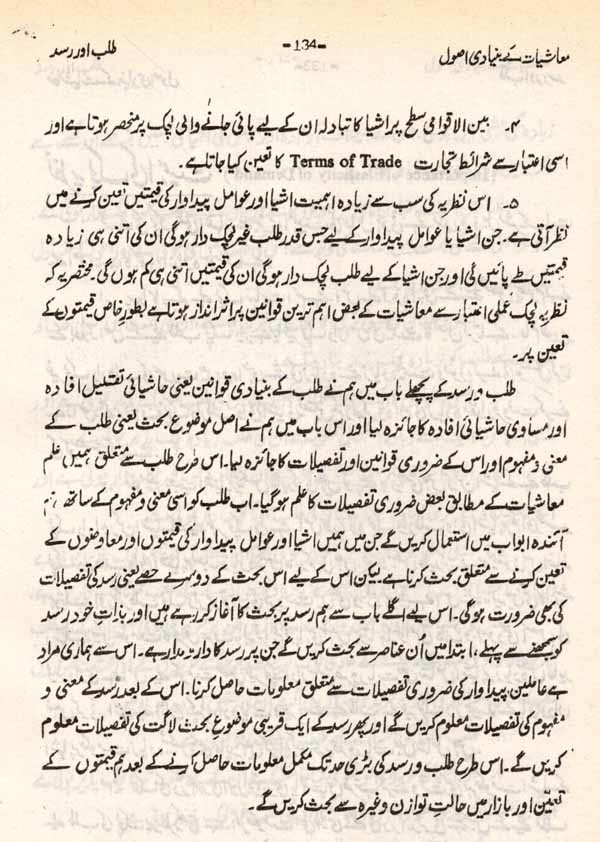 معاشیات کے بنیادی اصول
-134-
طلب اور رسد
۴۔ بین الاقوامی سطح پر اشیا کا تبادلہ ان کے لیے پائی جانے والی لچک پر منحصر ہوتا ہے اور
اسی اعتبار سے شرائط تجارت Terms of Trade کا تعین کیا جاتا ہے۔
۵۔ اس نظریہ کی سب سے زیادہ اہمیت اشیا اور عوامل پیداوار کی قیمتیں تعین کرنے میں
نظر آتی ہے۔ جن اشیا یا عوامل پیداوار کے لیے جس قدر طلب غیر لچک دار ہوگی ان کی اتنی ہی زیادہ
قیمتیں طے پائیں گی اور جن اشیا کے لیے طلب لچک دار ہوگی ان کی قیمتیں اتنی ہی کم ہوں گی۔ مختصر یہ کہ
نظریہ لچک عملی اعتبار سے معاشیات کے بعض اہم ترین قوانین پر اثر انداز ہوتا ہے بطور خاص قیمتوں کے
تعین پر۔
طلب و رسد کے پچھلے باب میں ہم نے طلب کے بنیادی قوانین یعنی حاشیائی تقلیل افادہ
اور مساوی حاشیائی افادہ کا جائزہ لیا اور اس باب میں ہم نے اصل موضوع بحث یعنی طلب کے
معنی و مفہوم اور اس کے ضروری قوانین اور تفصیلات کا جائزہ لیا۔ اس طرح طلب سے متعلق ہمیں علم
معاشیات کے مطابق بعض ضروری تفصیلات کا علم ہوگیا۔ اب طلب کو اسی معنی و مفہوم کے ساتھ ہم
آئندہ ابواب میں استعمال کریں گے جن میں ہمیں اشیا اور عوامل پیداوار کی قیمتوں اور معاوضوں کے
تعین کرنے سے متعلق بحث کرنا ہے لیکن اس کے لیے اس بحث کے دوسرے حصے یعنی رسد کی تفصیلات
کی بھی ضرورت ہوگی۔ اس لیے اگلے باب سے ہم رسد پر بحث کا آغاز کر رہے ہیں اور بذاتِ خود رسد
کو سمجھنے سے پہلے، ابتدا میں اُن عناصر سے بحث کریں گے جن پر رسد کا دارومدار ہے۔ اس سے ہماری مراد
ہے عاملین پیداوار کی ضروری تفصیلات سے متعلق معلومات حاصل کرنا۔ اس کے بعد رسد کے معنی و
مفہوم کی تفصیلات معلوم کریں گے اور پھر رسد کے ایک قریبی موضوع بحث لاگت کی تفصیلات معلوم
کریں گے۔ اس طرح طلب و رسد کی بڑی حد تک مکمل معلومات حاصل کرنے کے بعد ہم قیمتوں کے
تعیّن اور بازار میں حالتِ توازن وغیرہ سے بحث کریں گے۔